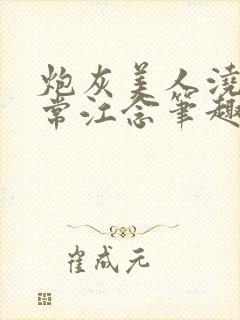 炮灰美人浇
常江念笔趣
崔成元